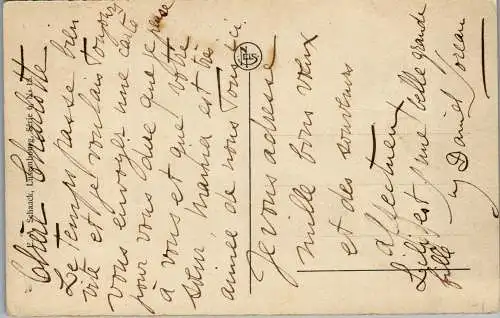 Chère Charlotte
Le temps passe bien
vite et je voulais toujours
vous envoyer une carte
pour vous dire que je pense
à vous et que votre
sœur Marna est très
aimée de nous Tous ici
Je vous adresse
mille bons vœux
et des souvenirs
affectueux
Lily est une belle grande
fille
Daniel
Schaack, Luxembourg, Série